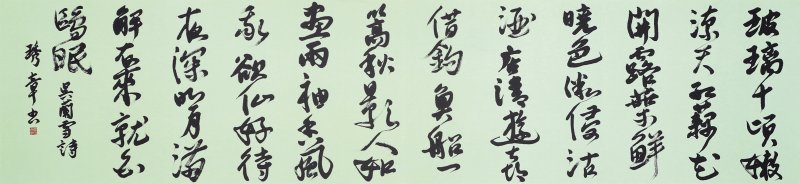 玻璃十頃嫩
涼天紅藕花
開露鮮
曉色漸侵沽
酒店清遊喜
借釣魚船一
篙秋影人如
畫兩袖香風
我欲仙好待
夜深明月滿
解衣來就白
鷗眠 吳蘭雪詩
章書